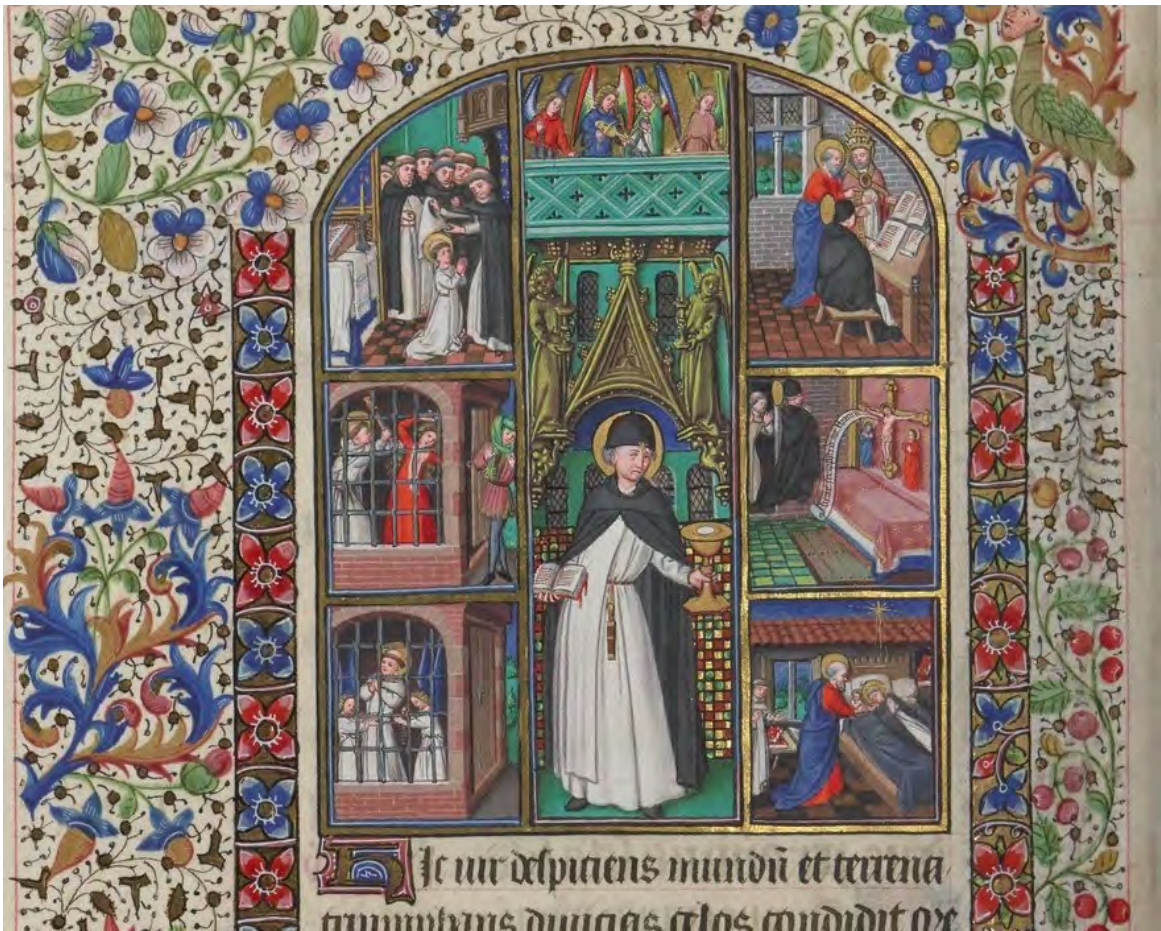 Hic uir despiciens mundū et terrena
triumphans diuicias celos condidit ore